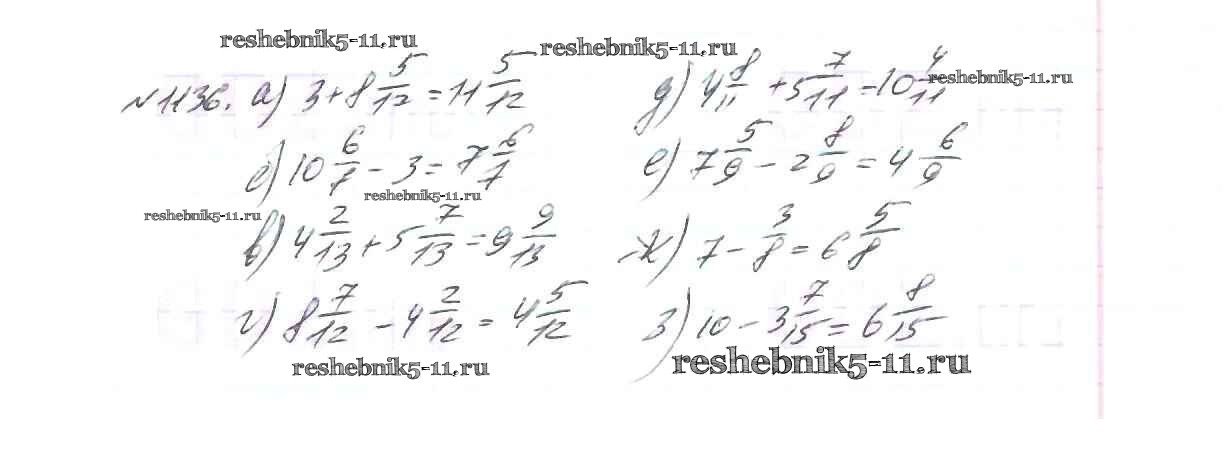 reshebnik5-11.ru
reshebnik5-11.ru
№ 1136. а) 3 + 8 5/12 = 11 5/12
д) 4 8/11 + 5 7/11 = 10 4/11
reshebnik5-11.ru
б) 10 6/7 - 3 = 7 6/7
е) 7 5/9 - 2 8/9 = 4 6/9
reshebnik5-11.ru
reshebnik5-11.ru
в) 4 2/13 + 5 7/13 = 9 9/13
ж) 7 - 3/8 = 6 5/8
г) 8 7/12 - 4 2/12 = 4 5/12
з) 10 - 3 7/15 = 6 8/15
reshebnik5-11.ru
reshebnik5-11.ru